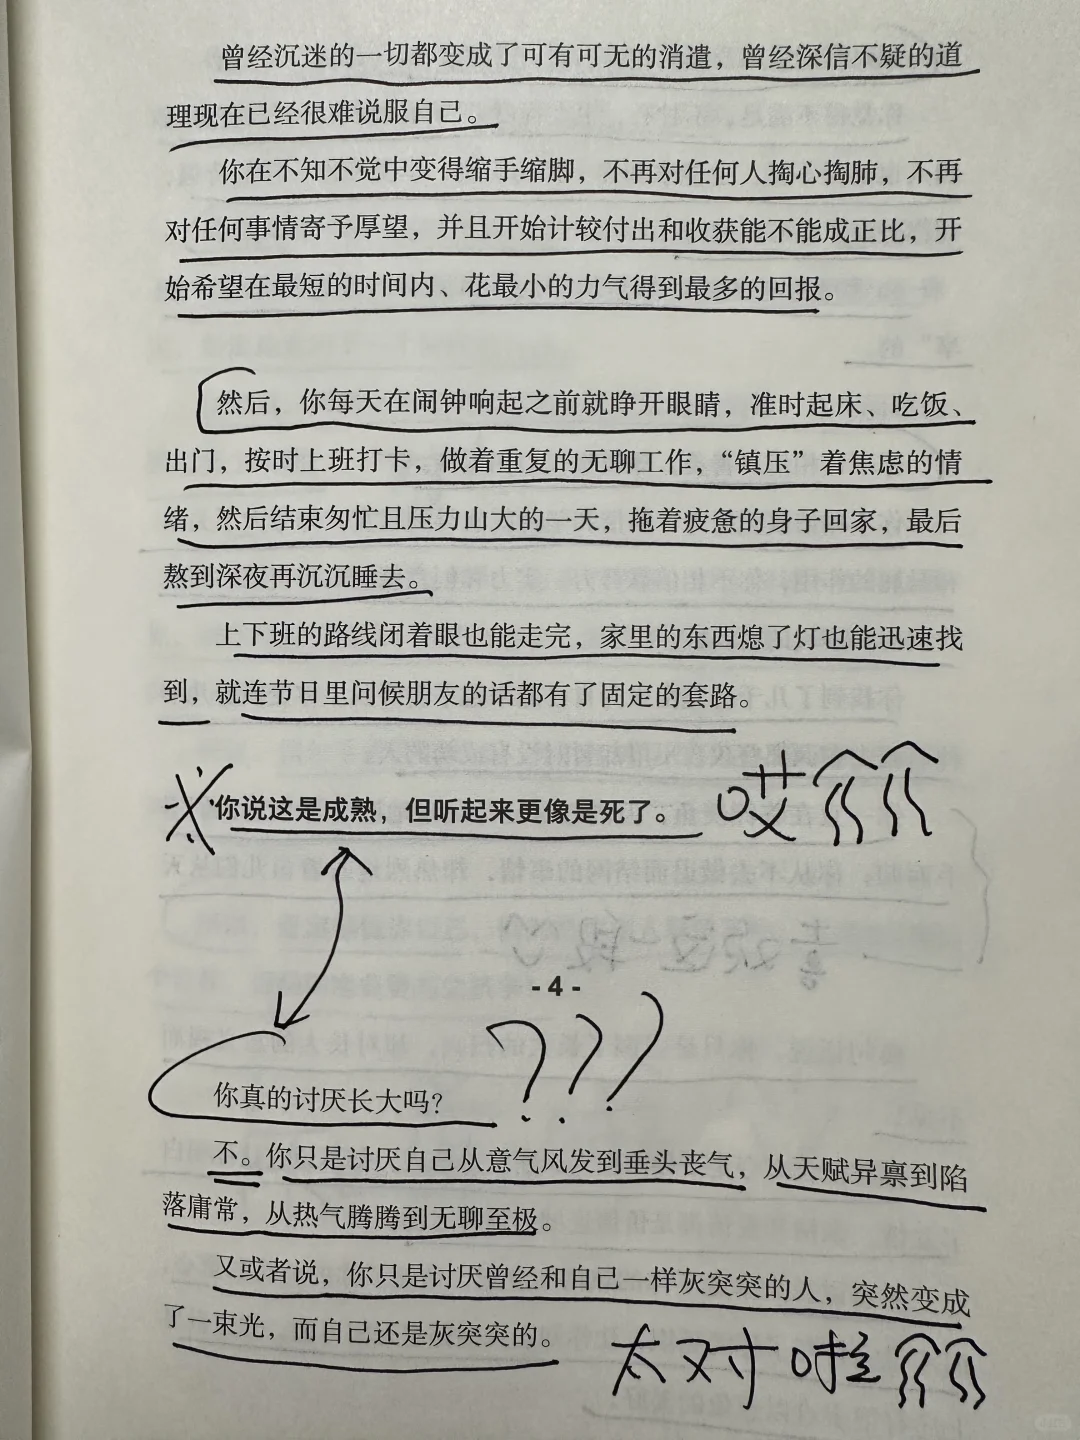 曾经沉迷的一切都变成了可有可无的消遣，曾经深信不疑的道
理现在已经很难说服自己。
你在不知不觉中变得缩手缩脚，不再对任何人掏心掏肺，不再
对任何事情寄予厚望，并且开始计较付出和收获能不能成正比，开
始希望在最短的时间内、花最小的力气得到最多的回报。
然后，你每天在闹钟响起之前就睁开眼睛，准时起床、吃饭、
出门，按时上班打卡，做着重复的无聊工作，“镇压”着焦虑的情
绪，然后结束匆忙且压力山大的一天，拖着疲惫的身子回家，最后
熬到深夜再沉沉睡去。
上下班的路线闭着眼也能走完，家里的东西熄了灯也能迅速找
到，就连节日里问候朋友的话都有了固定的套路。
※你说这是成熟，但听起来更像是死了。哎
- 4 -
???
你真的讨厌长大吗？
不。你只是讨厌自己从意气风发到垂头丧气，从天赋异禀到陷
落庸常，从热气腾腾到无聊至极。
又或者说，你只是讨厌曾经和自己一样灰突突的人，突然变成
了一束光，而自己还是灰突突的。
太对啦